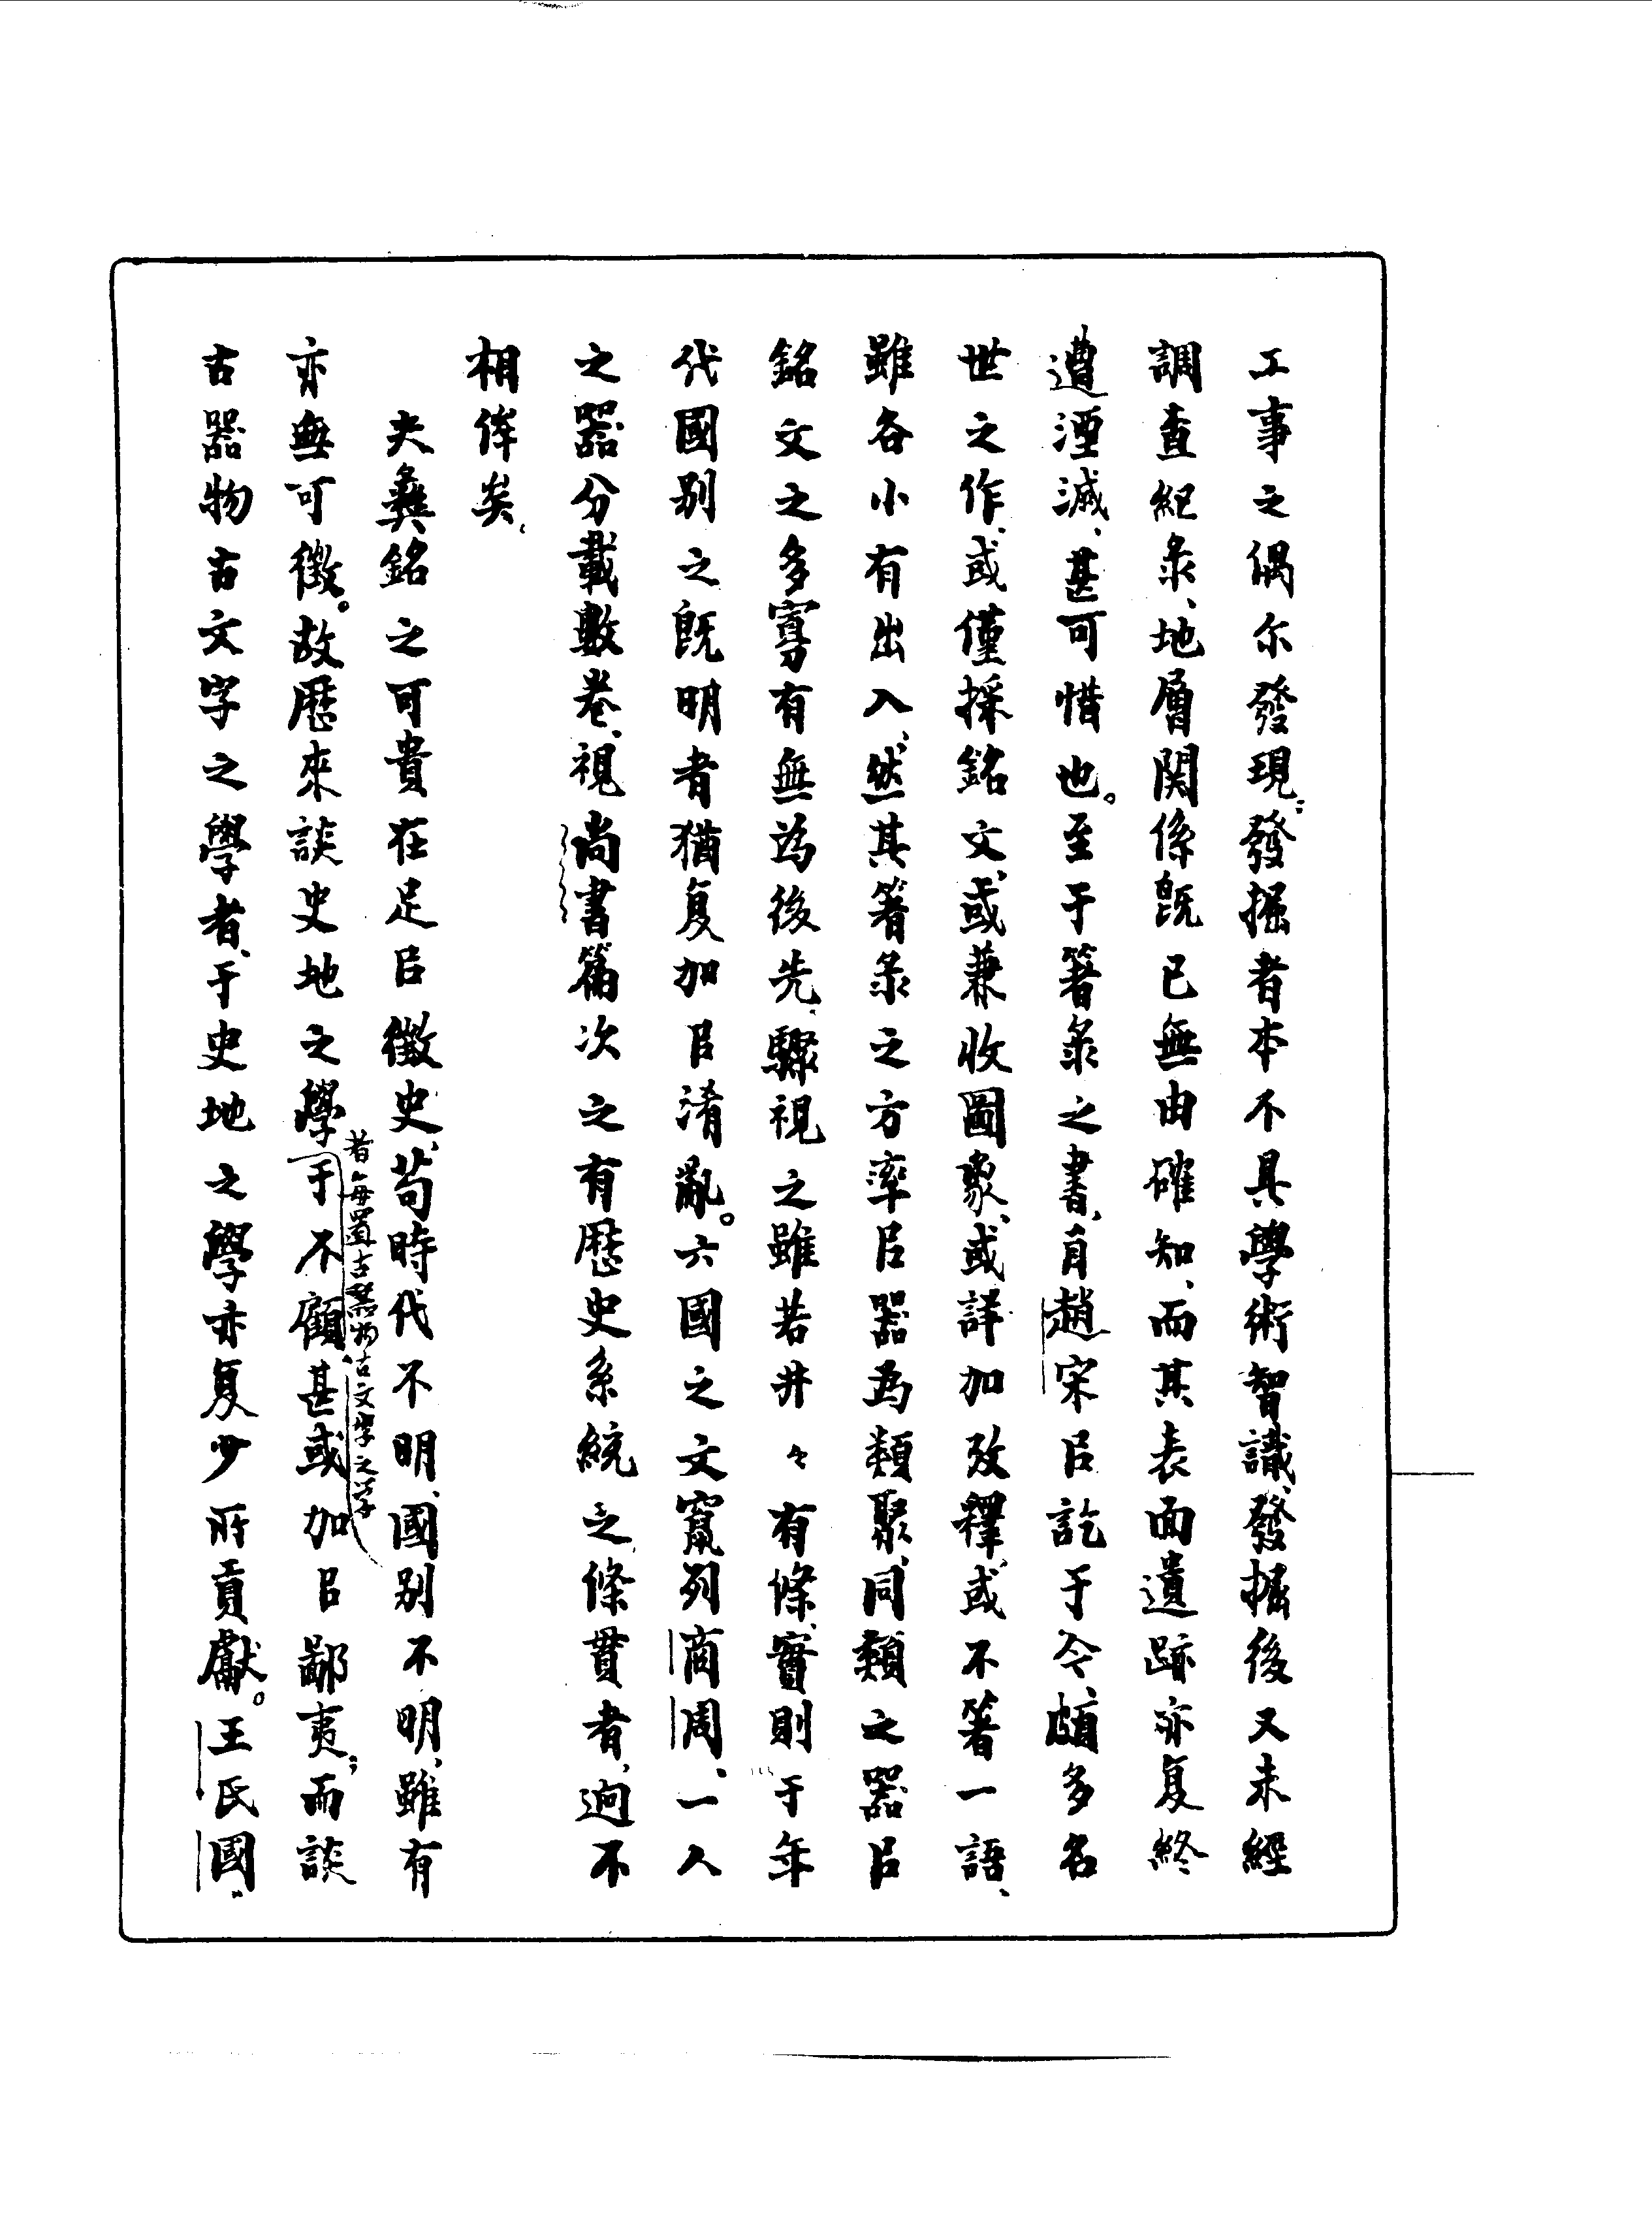 工事之偶尔發現；發掘者本不具學術智識、發掘後又未經
調查紀彔、地層関係既已無由確知、而其表面遺跡亦复終
遭湮滅、甚可惜也。至于箸彔之書、自趙宋㠯訖于今、頗多名
世之作、或僅採銘文、或兼收圖象、或詳加攷釋、或不箸一語、
雖各小有出入、然其箸彔之方率㠯器為類聚、同類之器㠯
銘文之多寡有無為後先、驟視之雖若井々有條、實則于年
代國别之既明者猶复加㠯淆亂。六國之文竄列商周、一人
之器分載數卷、視尚書篇次之有歷史系統之條貫者、迥不
相侔矣、
夫彝銘之可貴在足㠯徵史、苟時代不明、國别不明、雖有
亦無可徵。故歷來談史地之學者每置古器物古文字之学于不顧甚或加㠯鄙夷；而談
古器物古文字之學者、于史地之學亦复少所貢獻。王氏國、